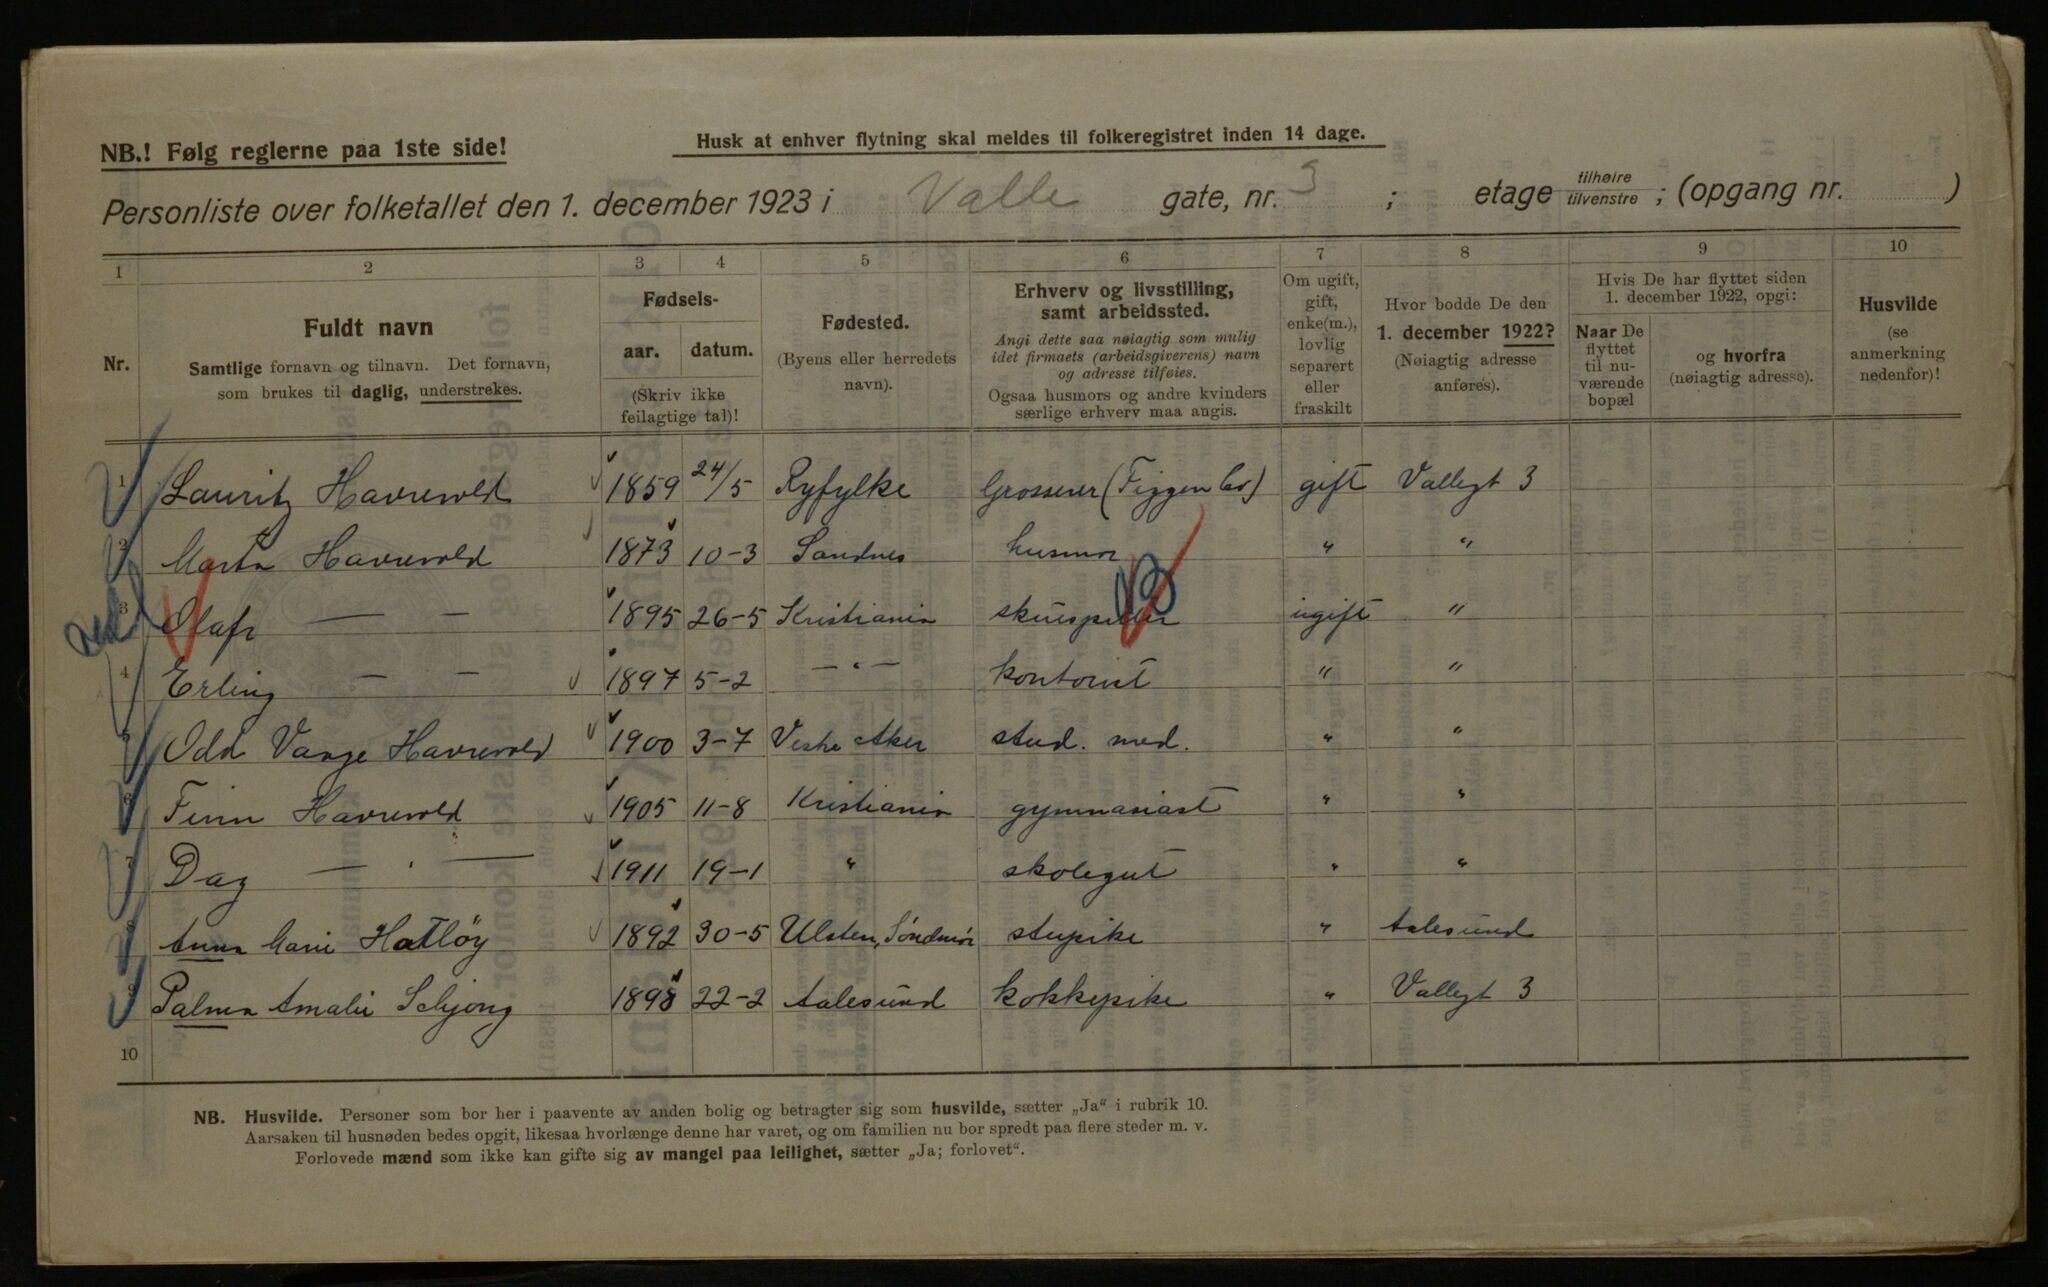 NB.! Følg reglerne paa 1ste side!
Husk at enhver flytning skal meldes til folkeregistret inden 14 dage.
Personliste over folketallet den 1. december 1923 i Valle gate, nr. 3 ; etage tilhøire tilvenstre ; (opgang nr. )
1 2 3 4 5 6 7 8 9 10
Nr.
Fuldt navn
Samtlige fornavn og tilnavn. Det fornavn,
som brukes til daglig, understrekes.
Fødsels-
aar. datum.
(Skriv ikke
feilagtige tal)!
Fødested.
(Byens eller herredets
navn).
Erhverv og livsstilling,
samt arbeidssted.
Angi dette saa nøiagtig som mulig
idet firmaets (arbeidsgiverens) navn
og adresse tilføies.
Ogsaa husmors og andre kvinders
særlige erhverv maa angis.
Om ugift,
gift,
enke(m.),
lovlig
separert
eller
fraskilt
Hvor bodde De den
1. december 1922?
(Nøiagtig adresse
anføres).
Hvis De har flyttet siden
1. december 1922, opgi:
Naar De
flyttet
til nu-
værende
bopæl
og hvorfra
(nøiagtig adresse).
Husvilde
(se
anmerkning
nedenfor)!
1 Lauritz Havrevold 1859 24/5 Ryfylke Grosserer (Figgen Co) gift Vallegt 3
2 Marta Havrevold 1873 10-3 Sandnes husmor " "
3 Olafr — — 1895 26-5 Kristiania skuespiller ugift "
4 Erling — — 1897 5-2 — " — kontorist " "
5 Odd Vange Havrevold 1900 3-7 Vestre Aker stud. med. " "
6 Finn Havrevold 1905 11-8 Kristiania gymnasiast " "
7 Dag — " — 1911 19-1 " skolegut " "
8 Anna Marie Hatløy 1892 30-5 Ulsten, Söndmör stupike " Aalesund
9 Palma Amalie Schjong 1898 22-2 Aalesund kokkepike " Vallegt 3
10
NB. Husvilde. Personer som bor her i paavente av anden bolig og betragter sig som husvilde, sætter „Ja" i rubrik 10.
Aarsaken til husnøden bedes opgit, likesaa hvorlænge denne har varet, og om familien nu bor spredt paa flere steder m. v.
Forlovede mænd som ikke kan gifte sig av mangel paa leilighet, sætter „Ja; forlovet".